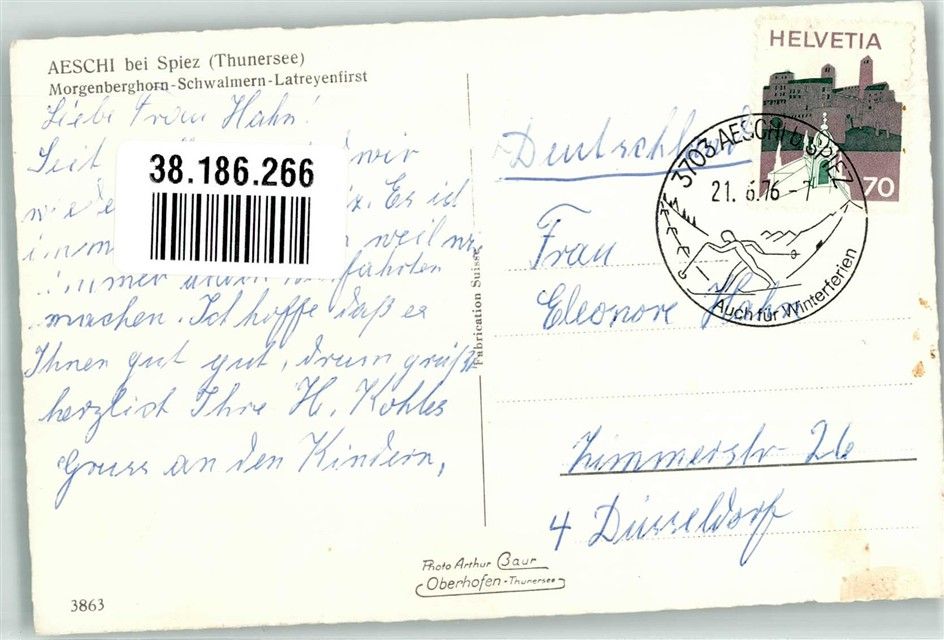 AESCHI bei Spiez (Thunersee)
Morgenberghorn-Schwalmern-Latreyenfirst
Liebe Frau Hahn!
Seit wir
Es ist
weil wir
immer fahrten
machen. Ich hoffe daß es
Ihnen gut gut, drum grüßt
herzlich Ihre H. Kohles
Gruss an den Kindern,
38.186.266
Fabrication Suisse
HELVETIA
70
3703 AESCHI b. SPIEZ
21. 6.76 - 7
Auch für Winterferien
Deutschland
Frau
Eleonore Hahn
Zimmerstr. 26
4 Düsseldorf
Photo Arthur Baur
Oberhofen-Thunersee
3863